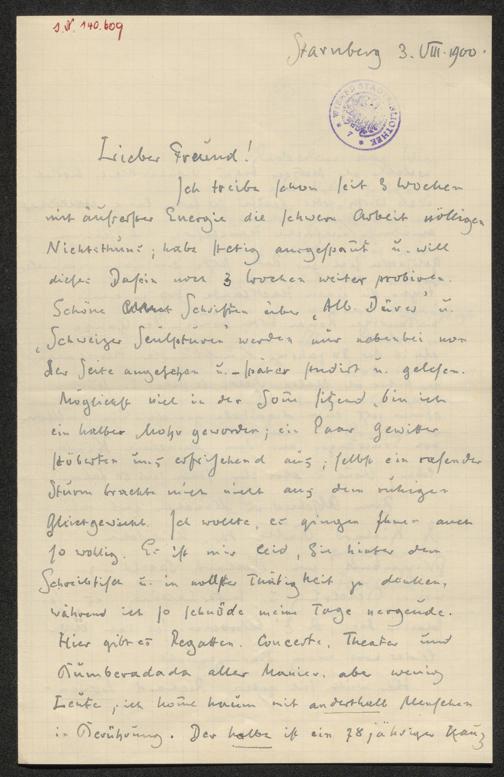 J.N. 140.609
Starnberg 3. VIII. 1900.
WIENER STADTBIBLIOTHEK
Lieber Freund!
Ich treibe schon seit 3 Wochen
mit äußerster Energie die schwere Arbeit völligen
Nichtsthuns; habe stetig ausgespannt u. will
dieses Dasein noch 3 Wochen weiter probiren.
Schöne Schriften über „Alb. Dürer" u.
„Schweizer Sculpturen" werden nur nebenbei von
der Seite angesehen u. – später studirt u. gelesen.
Möglichst viel in der Soñe sitzend, bin ich
ein halber Mohr geworden; ein Paar Gewitter
stöberten uns erfrischend aus; selbst ein rasender
Sturm brachte mich nicht aus dem ruhigen
Gleichgewicht. Ich wollte, es ginge Ihnen auch
so wohlig. Es ist mir leid, Sie hinter dem
Schreibtisch u. in vollster Tätigkeit zu denken,
während ich so schnöde meine Tage vergeude.
Hier gibt es Regatten, Concerte, Theater und
aller Manier, aber wenig
Leute; ich kom̃e kaum mit anderthalb Menschen
in Berührung. Der halbe ist ein 78 jähriger Kauz